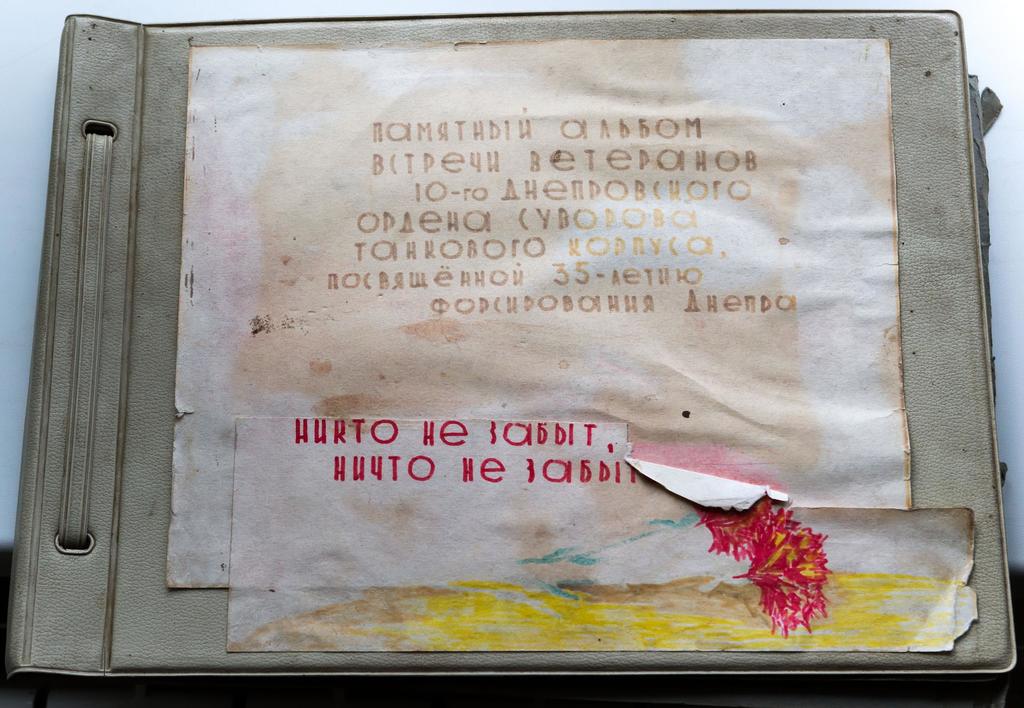 ПАМЯТНЫЙ АЛЬБОМ
ВСТРЕЧИ ВЕТЕРАНОВ
10-го ДНЕПРОВСКОГО
ОРДЕНА СУВОРОВА
ТАНКОВОГО КОРПУСА,
ПОСВЯЩЁННОЙ 35-ЛЕТИЮ
ФОРСИРОВАНИЯ ДНЕПРА
НИКТО НЕ ЗАБЫТ,
НИЧТО НЕ ЗАБЫТ